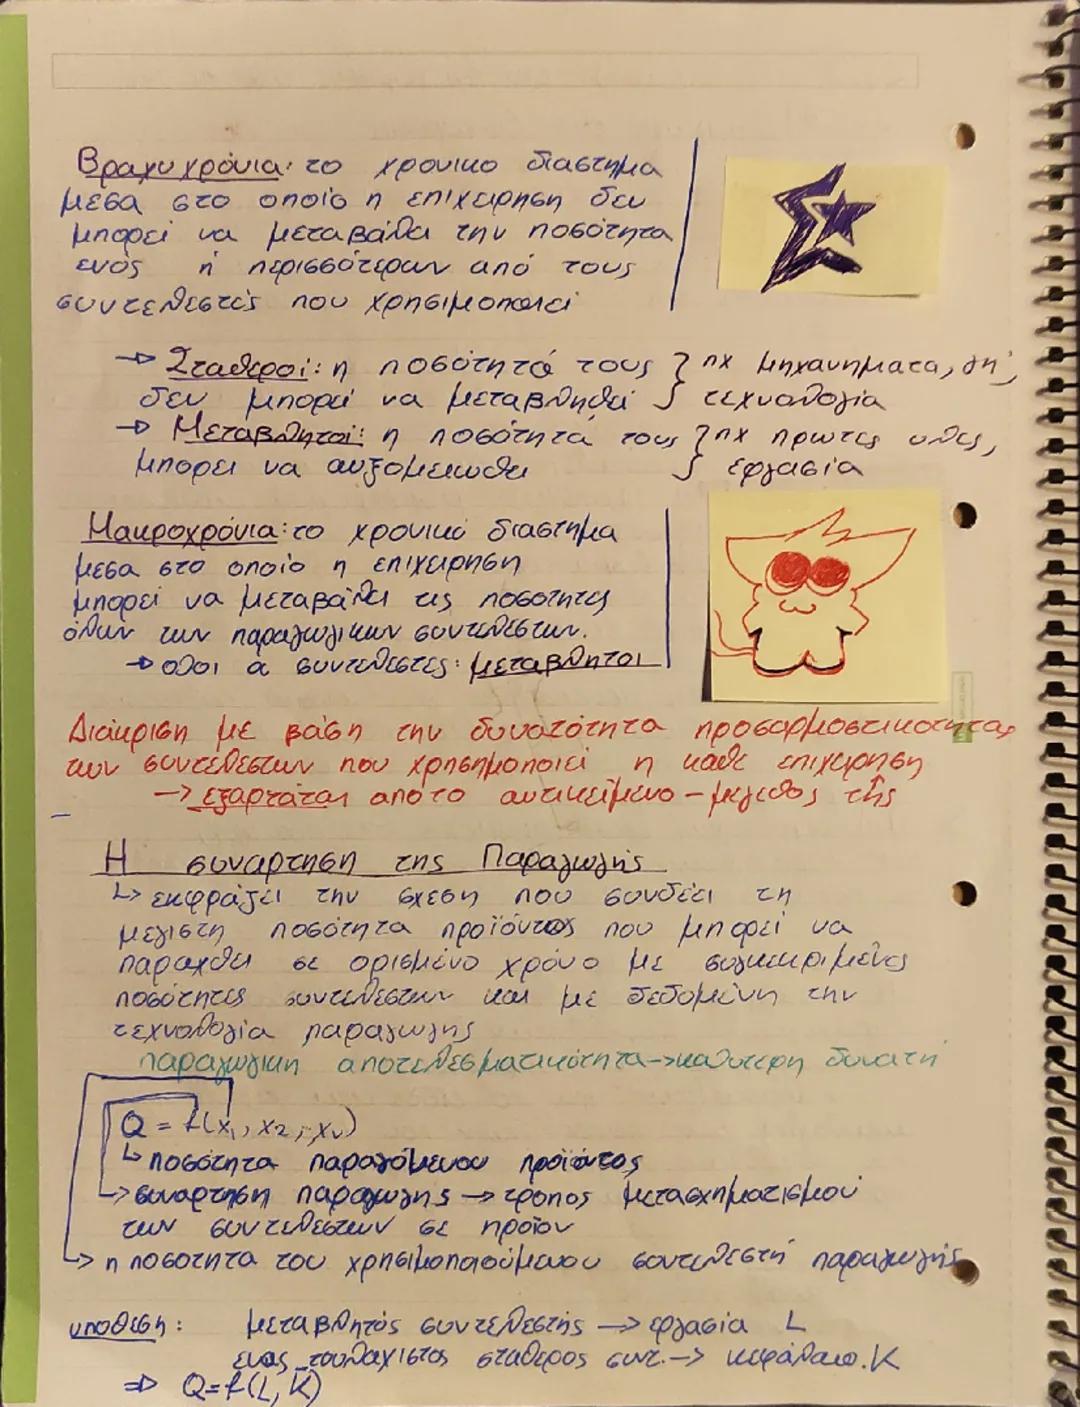 Βραχυχρόνια: το χρονικο διαστημα
μεσα στο οποίο η επιχειρηση δεν
μπορεί να μεταβάλλει την ποσότητα
ενός ή περισσότερων από τους
συντελεστές που χρησιμοποιεί
→ Σταθεροί: η ποσότητά τους } πχ μηχανηματα, γη,
δεν μπορεί να μεταβληθεί } τεχνολογία
→ Μεταβλητοί: η ποσότητά τους } πχ πρωτες υλες,
μπορει να αυξομειωθει } εργασία
Μακροχρόνια: το χρονικό διαστημα
μεσα στο οποίο η επιχειρηση
μπορεί να μεταβάλλει τις ποσοτητες
όλων των παραγωγικων συντελεστων.
→ ολοι οι συντελεστες: μεταβλητοι
Διάκριση με βάση την δυνατότητα προσαρμοστικοτητας
των συντελεστων που χρησημοποιεί η καθε επιχειρηση
→ εξαρτάται από το αντικείμενο - μεγεθος της
Η συναρτηση της Παραγωγής
↳ εκφράζει την σχεση που συνδέει τη
μεγιστη ποσότητα προϊόντος που μπορεί να
παραχθει σε ορισμένο χρόνο με συγκεκριμένες
ποσότητες συντελεστων και με δεδομένη την
τεχνολογία παραγωγης
παραγωγικη αποτελεσματικότητα → καλυτερη δυνατή
Q = f(x₁, x₂, xᵥ)
↳ ποσότητα παραγόμενου προϊόντος
↳ συναρτηση παραγωγης → τροπος μετασχηματισμού
των συντελεστων σε προϊον
↳ η ποσοτητα του χρησιμοποιούμενου συντελεστή παραγωγής
υποθεση: μεταβλητός συντελεστής → εργασία L
ενας τουλαχιστος σταθερος συντ. → κεφάλαιο. K
⇒ Q=f(L, K)